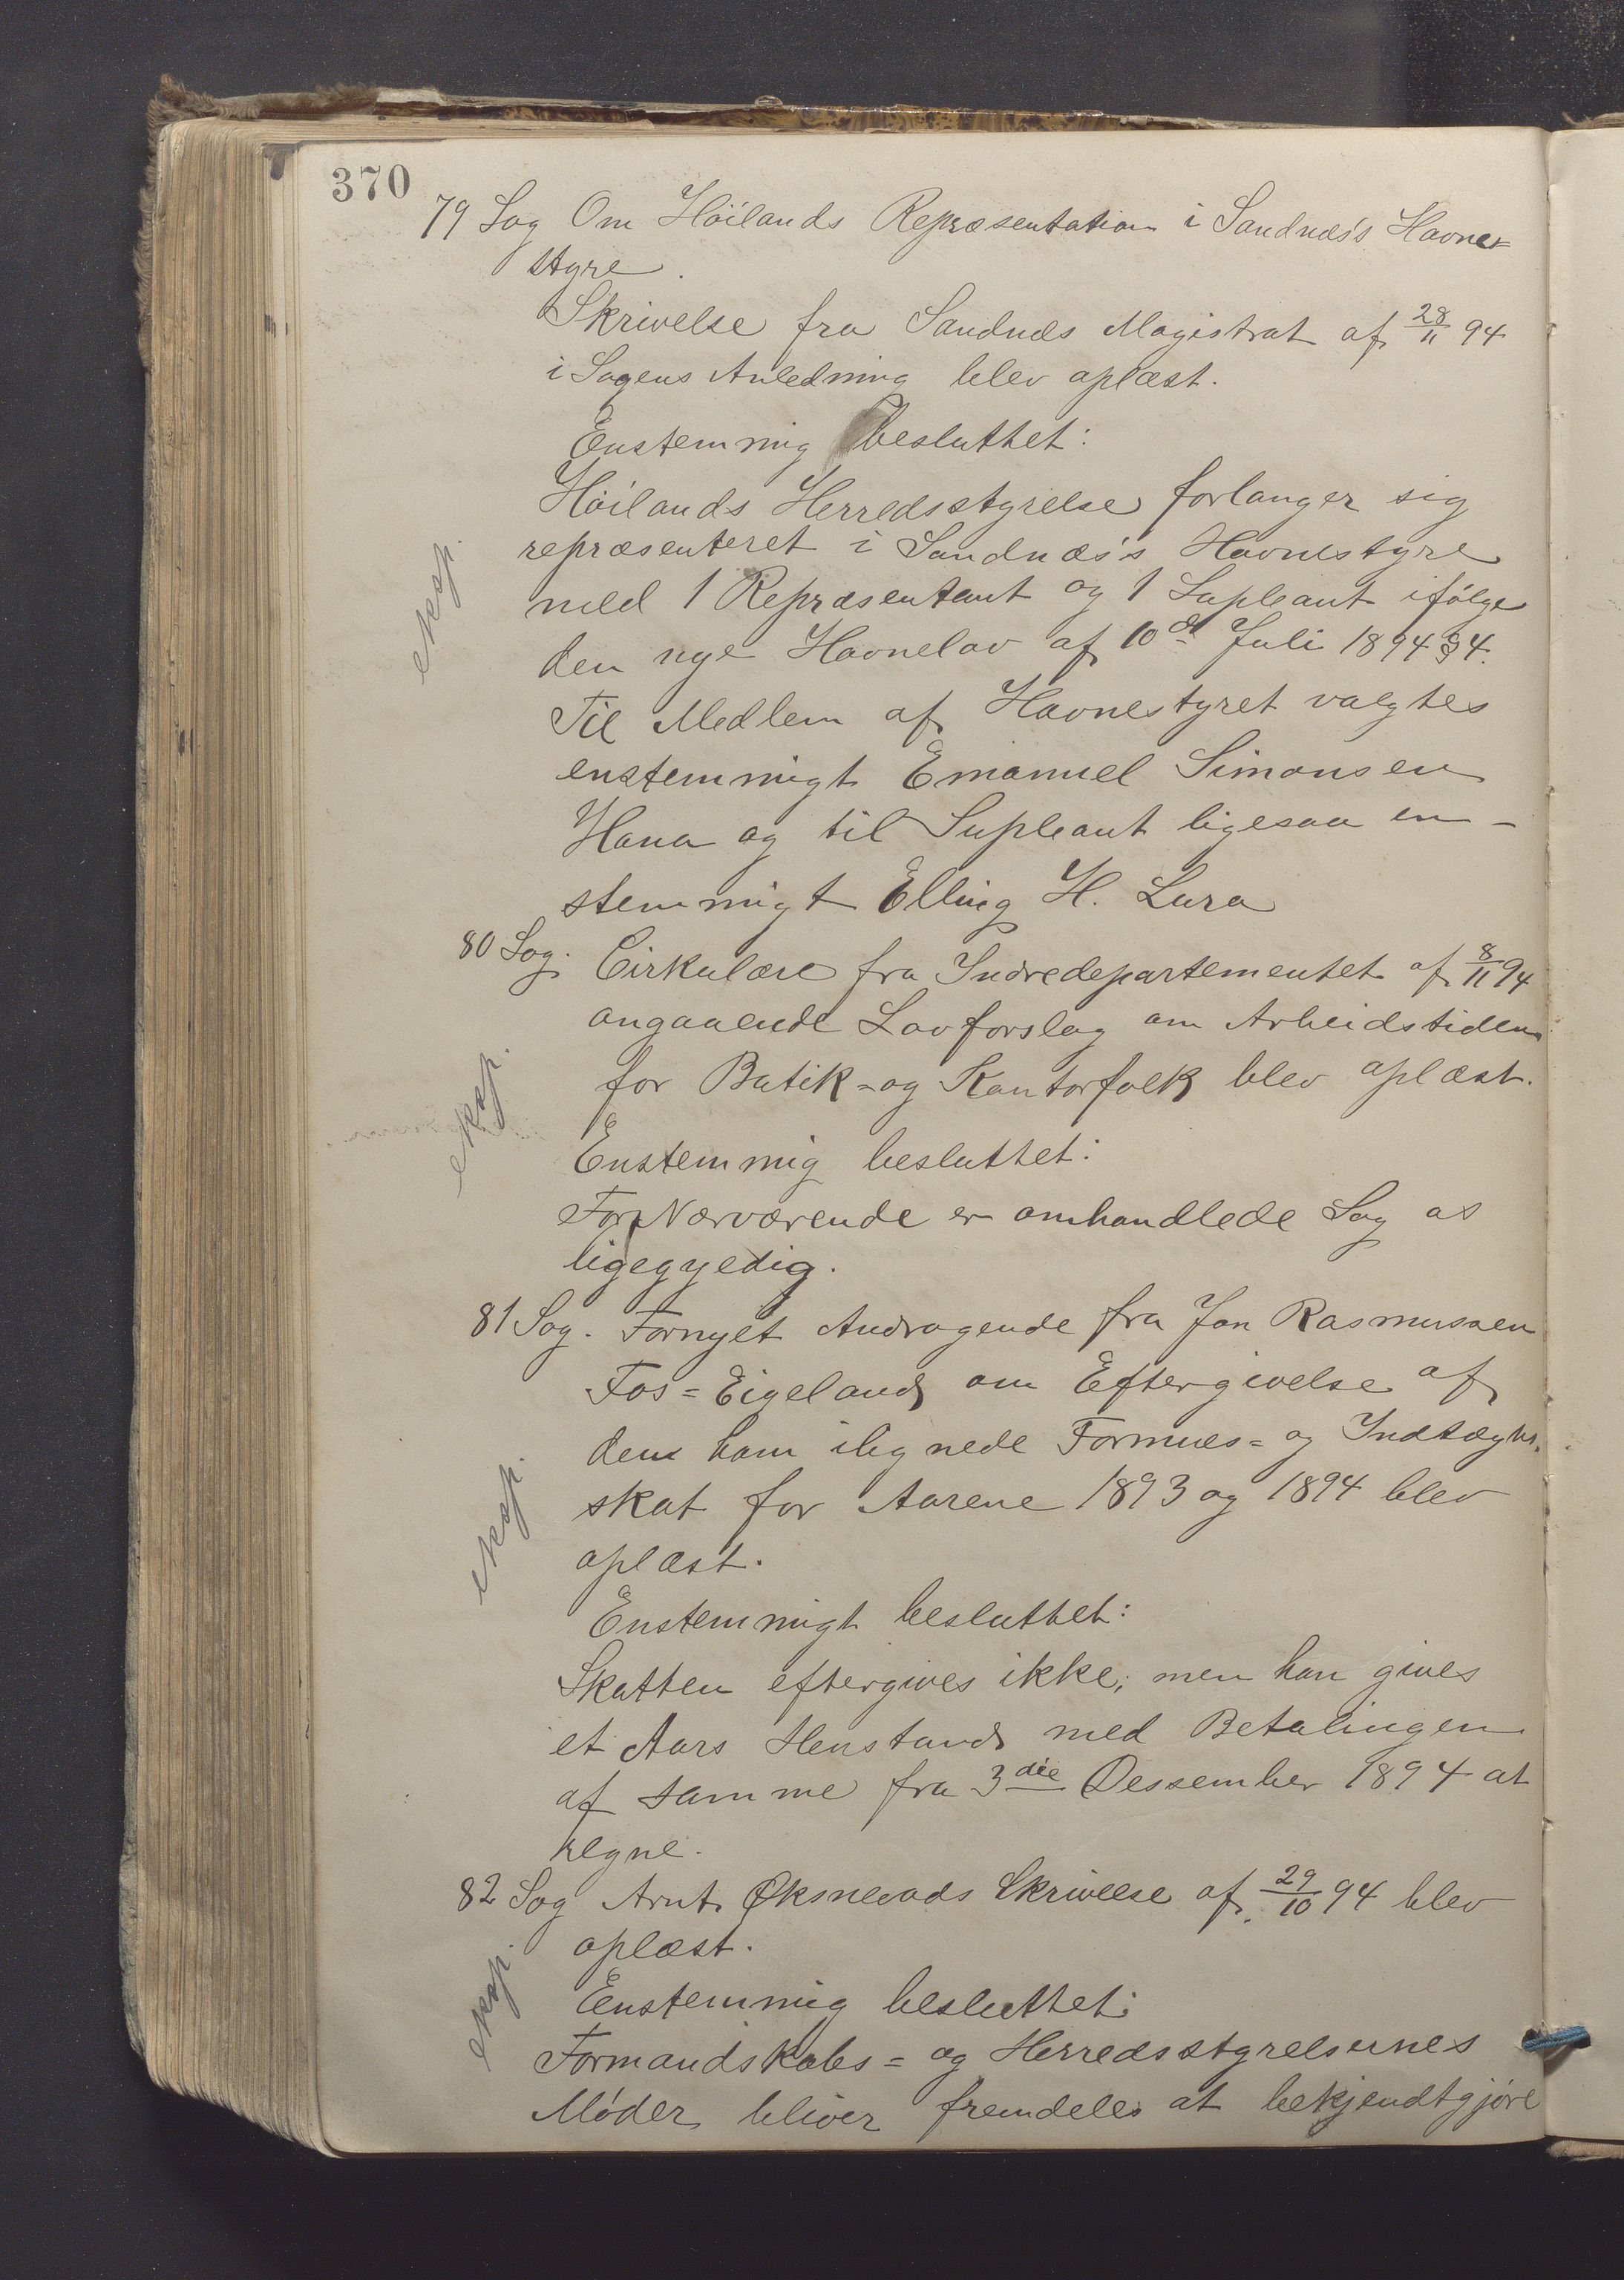 370
79 Sag Om Höilands Repræsentation i Sandnæs's Havne-
styre.
Skrivelse fra Sandnæs Magistrat af 28/11 94
i Sagens Anledning blev oplæst.
Enstemmig besluttet:
Höilands Herredsstyrelse forlanger sig
repræsenteret i Sandnæs's Havnestyre
med 1 Repræsentant og 1 Supleant ifölge
den nye Havnelov af 10de Juli 1894 § 4.
eksp.
Til Medlem af Havnestyret valgtes
enstemmigt Emanuel Simonsen
Hana og til Supleant ligesaa en-
stemmigt Elling H. Lura
80 Sag. Cirkulære fra Indredepartementet af 8/11 94
angaaende Lovforslag om Arbeidstiden
for Butik- og Kontorfolk blev oplæst.
eksp.
Enstemmig besluttet:
For Nærværende er omhandlede Sag os
ligegyedig.
81 Sag. Fornyet Andragende fra Jon Rasmussen
Fos=Eigeland om Eftergivelse af
den ham ilignede Formues= og Indtægts-
skat for Aarene 1893 og 1894 blev
oplæst.
eksp.
Enstemmigt besluttet:
Skatten eftergives ikke; men han gives
et Aars Henstand med Betalingen
af samme fra 3die Dessember 1894 at
regne.
82 Sag Arnt Øksnevads Skrivelse af 29/10 94 blev
oplæst.
eksp.
Enstemmig besluttet:
Formandskabs= og Herredsstyrelsernes
Möder bliver fremdeles at bekjendtgjöre